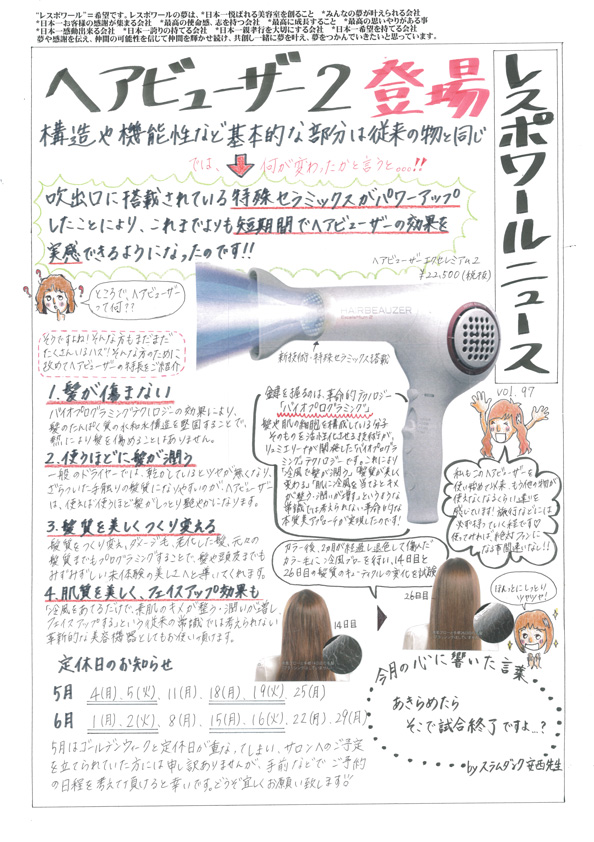 "レスポワール"＝希望です。レスポワールの夢は、*日本一悦ばれる美容室を創ること　*みんなの夢が叶えられる会社
*日本一お客様の感謝が集まる会社　*最高の使命感、志を持つ会社　*最高に成長すること　*最高の思いやりがある事
*日本一感動出来る会社　*日本一誇りの持てる会社　*日本一親孝行を大切にする会社　*日本一希望を持てる会社
夢や感謝を伝え、仲間の可能性を信じて仲間を輝かせ続け、共創し一緒に夢を叶え、夢をつかんでいきたいと思っています。
ヘアビューザー2 登場
レスポワールニュース
vol.97
構造や機能性など基本的な部分は従来の物と同じ
では、何が変わったかと言うと。。。!!
吹出口に搭載されている特殊セラミックスがパワーアップ
したことにより、これまでよりも短期間でヘアビューザーの効果を
実感できるようになったのです!!
ヘアビューザー エクセレミアム2
¥22,500(税抜)
HAIRBEAUZER
新技術・特殊セラミックス搭載
ところで、ヘアビューザー
って何??
そうですよね!そんな方もまだまだ
たくさんいるハズ!そんな方のために
改めてヘアビューザーの特長をご紹介
1.髪が傷まない
バイオプログラミングテクノロジーの効果により、
髪のたんぱく質の水和水構造を整えることで、
熱により髪を傷めることはありません。
2.使うほどに髪が潤う
一般のドライヤーでは、乾かしているとツヤが無くなり、
ざらついた手触りの髪質になりやすいのが、ヘアビューザー
は、使えば使うほど髪がしっとり艶やかになります。
3.髪質を美しくつくり変える
髪質をつくり変え、ダメージも、老化した髪、元々の
髪質までもプログラミングすることで、髪や頭皮までも
みずみずしい未体験の美しさへと導いてくれます。
4.肌質を美しく、フェイスアップ効果も
「冷風をあてるだけで、素肌のキメが整う・潤いが増し、
フェイスアップする」という従来の常識では考えられない
革新的な美容機器としてもお使い頂けます。
鍵を握るのは、革命的テクノロジー
「バイオプログラミング」
髪や肌の細胞を構成している分子
そのものを活性化させる技術が、
リュミエリーナが開発した「バイオプログラ
ミング」テクノロジーです。これにより
「温風で髪が潤う」、「髪質が美しく
変わる」、「肌に冷風を当てるとキメ
が整う・潤いが増す」というような
常識では考えられない革命的な
本質美アプローチが実現したのです!
私もこのヘアビューザーを
使い始めて以来、もう他の物が
使えなくなるくらい違いを
感じています!旅行などには
必ず持っていく程です♡
使ってみれば、絶対ファンに
なる事間違いなし!!
カラー後、2ヵ月が経過し退色して傷んだ
カラー毛に冷風ブローを行い、14日目と
26日目の髪質のキューティクルの変化を試験
14日目
26日目
ほんっとにしっとり
ツヤツヤ!
定休日のお知らせ
5月　4(月)、5(火)、11(月)、18(月)、19(火)、25(月)
6月　1(月)、2(火)、8(月)、15(月)、16(火)、22(月)、29(月)
5月はゴールデンウィークと定休日が重なってしまい、サロンへのご予定
を立てられていた方には申し訳ありませんが、手前などでご予約
の日程を考えて頂けると幸いです。どうぞ宜しくお願い致します♡
今月の心に響いた言葉
あきらめたら
そこで試合終了ですよ…?
by スラムダンク 安西先生